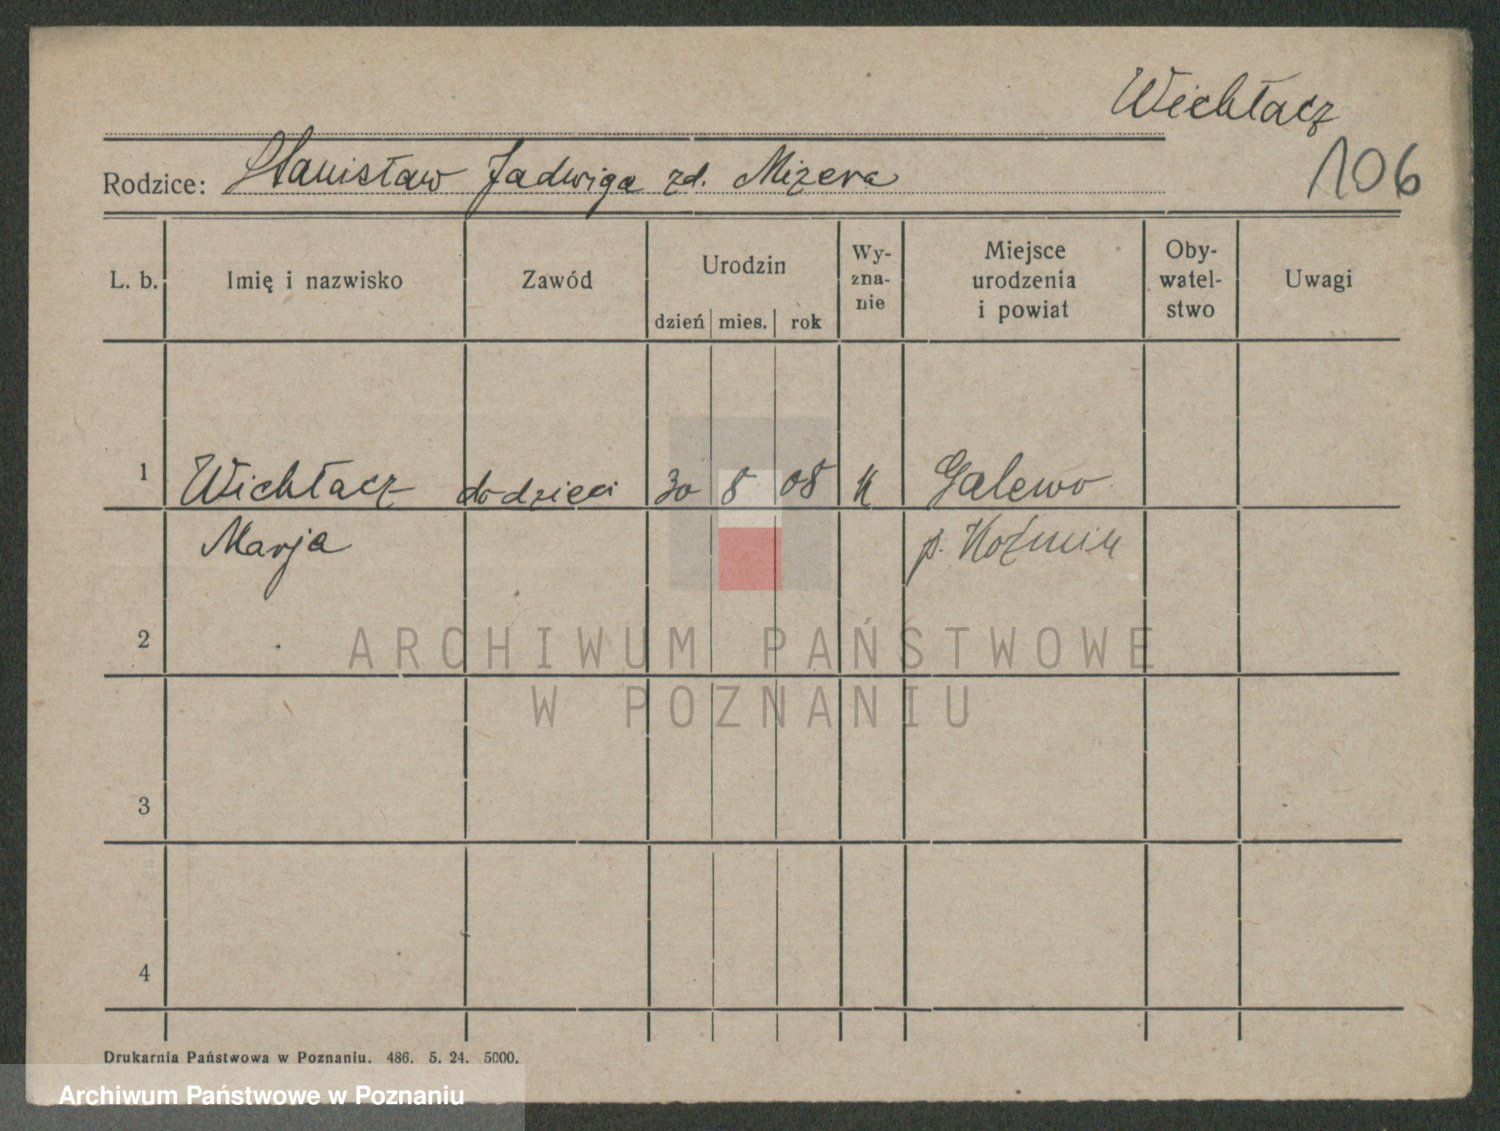 Wichłacz
106
Rodzice: Stanisław Jadwiga zd. Mizera
L. b. Imię i nazwisko Zawód Urodzin dzień mies. rok Wy-zna-nie Miejsce urodzenia i powiat Oby-watel-stwo Uwagi
1 Wichłacz do dzieci 30 8 08 k Galewo
Marja p. Koźmin
2
ARCHIWUM PAŃSTWOWE
W POZNANIU
3
4
Drukarnia Państwowa w Poznaniu. 486. 5. 24. 5000.
Archiwum Państwowe w Poznaniu